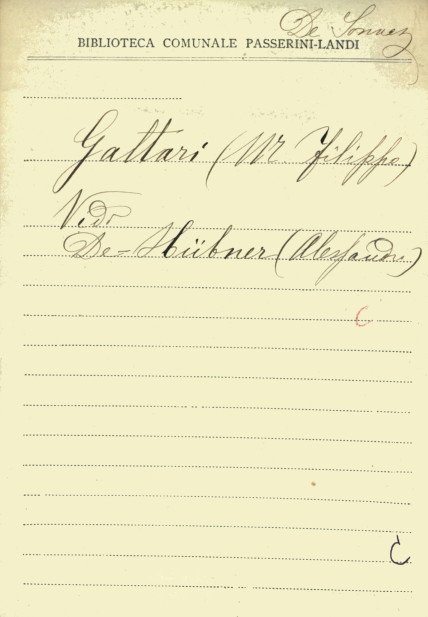 De
BIBLIOTECA COMUNALE PASSERINI-LANDI
Gattari (Mr. Filippo)
Vedi
De-Hübner (Alessandro)
C
C